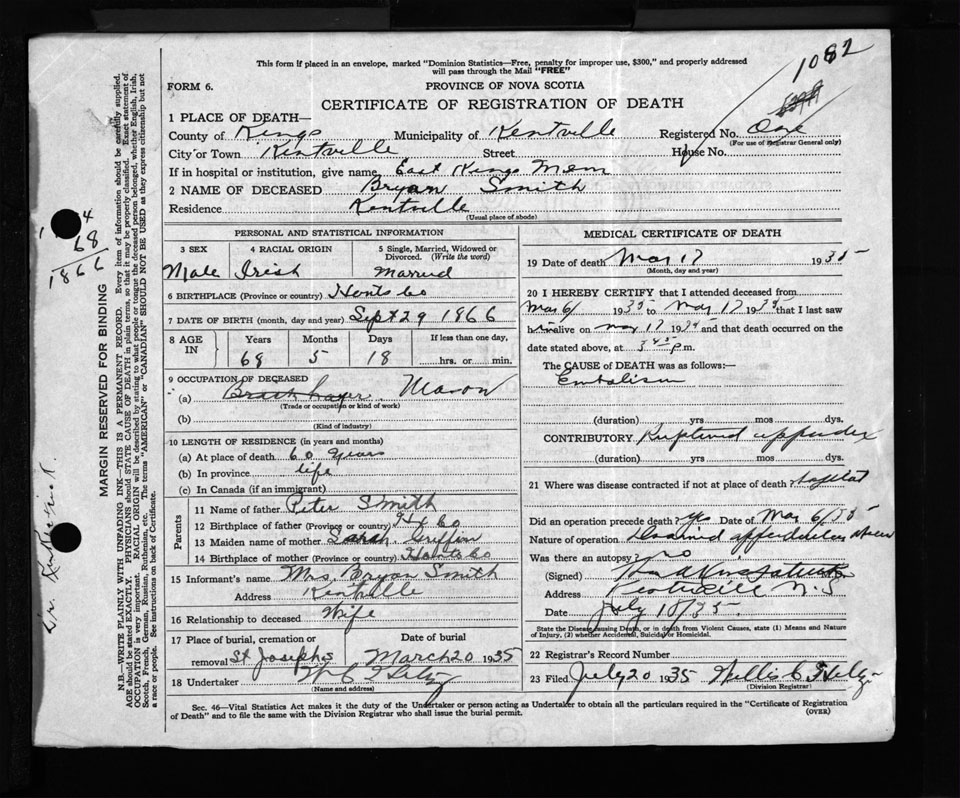 1082
This form if placed in an envelope, marked "Dominion Statistics—Free, penalty for improper use, $300," and properly addressed
will pass through the Mail "FREE"
FORM 6.
PROVINCE OF NOVA SCOTIA
CERTIFICATE OF REGISTRATION OF DEATH
1 PLACE OF DEATH—
County of Kings Municipality of Kentville Registered No. One
(For use of Registrar General only)
City or Town Kentville Street House No.
If in hospital or institution, give name East Kings Mem
2 NAME OF DECEASED Bryan Smith
Residence Kentville
(Usual place of abode)
PERSONAL AND STATISTICAL INFORMATION
3 SEX 4 RACIAL ORIGIN 5 Single, Married, Widowed or
Divorced. (Write the word)
Male Irish Married
6 BIRTHPLACE (Province or country) Hants Co
7 DATE OF BIRTH (month, day and year) Sept 29 1866
8 AGE IN Years Months Days If less than one day,
68 5 18 hrs. or min.
9 OCCUPATION OF DECEASED
(a) Mason
(Trade or occupation or kind of work)
(b)
(Kind of industry)
10 LENGTH OF RESIDENCE (in years and months)
(a) At place of death 60 years
(b) In province life
(c) In Canada (if an immigrant)
Parents
11 Name of father Peter Smith
12 Birthplace of father (Province or country) Hx Co
13 Maiden name of mother Sarah Griffin
14 Birthplace of mother (Province or country) Hants Co
15 Informant's name Mrs. Bryan Smith
Address Kentville
16 Relationship to deceased Wife
17 Place of burial, cremation or Date of burial
removal St Josephs March 20 1935
18 Undertaker W C
(Name and address)
MEDICAL CERTIFICATE OF DEATH
19 Date of death Mar 17 1935
(Month, day and year)
20 I HEREBY CERTIFY that I attended deceased from
Mar 6/ 1935 to Mar 17 1935 that I last saw
him alive on Mar 17 19 and that death occurred on
date stated above, at p.m.
The CAUSE of DEATH was as follows:—
Embolism
(duration) yrs mos dys.
CONTRIBUTORY Ruptured appendix
(duration) yrs. mos dys.
21 Where was disease contracted if not at place of death?
Did an operation precede death? yes Date of Mar 6/35
Nature of operation Drained
Was there an autopsy? no
(Signed)
Address Kentville N.S
Date July 10/35
State the Disease causing Death, or in death from Violent Causes, state (1) Means and Nature
of Injury, (2) whether Accidental, Suicidal or Homicidal.
22 Registrar's Record Number
23 Filed July 20 1935 Willis C
(Division Registrar)
Sec. 46—Vital Statistics Act makes it the duty of the Undertaker or person acting as Undertaker to obtain all the particulars required in the "Certificate of Registration
of Death" and to file the same with the Division Registrar who shall issue the burial permit. (OVER)
MARGIN RESERVED FOR BINDING
N.B.—WRITE PLAINLY WITH UNFADING INK—THIS IS A PERMANENT RECORD. Every item of information should be carefully supplied.
AGE should be stated EXACTLY. PHYSICIANS should STATE CAUSE OF DEATH in plain terms, so that it may be properly classified. Exact statement of
OCCUPATION is very important. RACIAL ORIGIN will be described by stating to what people or tongue the deceased person belonged, whether English, Irish,
Scotch, French, German, Russian, Ruthenian, etc. The terms "AMERICAN" or "CANADIAN" SHOULD NOT BE USED as they express citizenship but not
a race or people. See instructions on back of Certificate.
68
1866